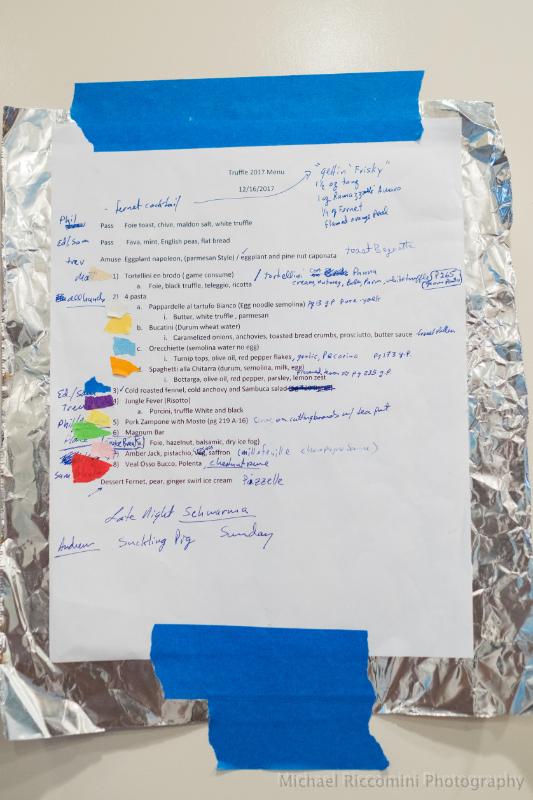 Truffle 2017 Menu
"gettin' Frisky"
12/16/2017
1½ oz
- fernet cocktail
1 oz Ramazzotti Amaro
¼ oz Fernet
flamed orange peel
Phil Pass Foie toast, chive, maldon salt, white truffle
Ed/Sam Pass Fava, mint, English peas, flat bread
trev Amuse Eggplant napoleon, (parmesan Style) / eggplant and pine nut caponata toast Baguette
1) Tortellini en brodo (game consume) / tortellini Parma
a. Foie, black truffle, teleggio, ricotta cream, nutmeg, white truffles
all hands 2) 4 pasta
a. Pappardelle al tartufo Bianco (Egg noodle semolina) pg 13 g.p.
i. Butter, white truffle, parmesan
b. Bucatini (Durum wheat water)
i. Caramelized onions, anchovies, toasted bread crumbs, prosciutto, butter sauce
c. Orecchiette (semolina water no egg)
i. Turnip tops, olive oil, red pepper flakes, garlic, Pecorino pg 173 g.p.
d. Spaghetti alla Chitarra (durum, semolina, milk, egg)
i. Bottarga, olive oil, red pepper, parsley, lemon zest
Ed/Sam 3) Cold roasted fennel, cold anchovy and Sambuca salad
Trev 4) Jungle Fever (Risotto)
a. Porcini, truffle White and black
Phil 5) Pork Zampone with Mosto (pg 219 A-16) Serve on cutting boards w/
6) Magnum Bar
Foie, hazelnut, balsamic, dry ice fog)
7) Amber Jack, pistachio, saffron (millefeuille
Sam 8) Veal Osso Bucco, Polenta, chestnut
Dessert Fernet, pear, ginger swirl ice cream Pizzelle
Late Night Schwarma
Andrew Suckling Pig Sunday
Michael Riccomini Photography